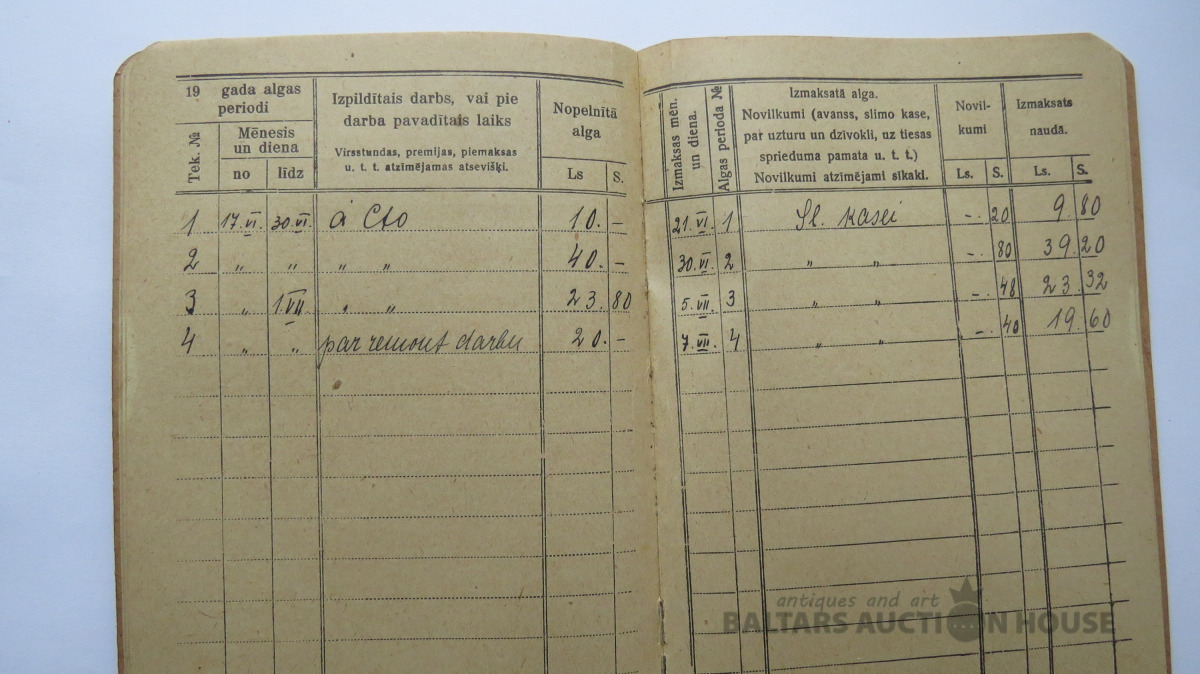 19 gada algas periodi
Tek. №
Mēnesis un diena
no līdz
Izpildītais darbs, vai pie
darba pavadītais laiks
Virsstundas, premijas, piemaksas
u. t. t. atzīmējamas atsevišķi.
Nopelnītā
alga
Ls S.
1 17.VI. 30.VI. á Cto 10. –
2 „ „ „ „ 40. –
3 „ 1.VII „ „ 23. 80
4 „ „ par remont darbu 20. –
Izmaksas mēn.
un diena.
Algas perioda №
Izmaksatā alga.
Novilkumi (avanss, slimo kase,
par uzturu un dzīvokli, uz tiesas
sprieduma pamata u. t. t.)
Novilkumi atzīmējami sīkaki.
Novil-
kumi
Ls. S.
Izmaksats
naudā.
Ls. S.
21.VI. 1 Sl. kasei –. 20 9. 80
30.VI. 2 „ „ –. 80 39. 20
5.VII. 3 „ „ –. 48 23. 32
7.VII. 4 „ „ –. 40 19. 60
antiques and art
BALTARS AUCTION HOUSE